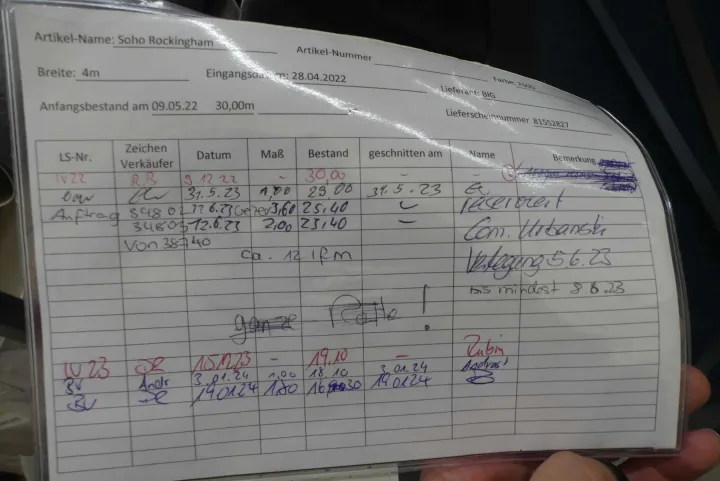 Artikel-Name: Soho Rockingham Artikel-Nummer
Breite: 4m Eingangsdatum: 28.04.2022 Lieferant: BIG
Anfangsbestand am 09.05.22 30,00m Lieferscheinnummer 81552827
LS-Nr. Zeichen Verkäufer Datum Maß Bestand geschnitten am Name Bemerkung
IV22 R.B 9.12.22 - 30,00 - -
31.5.23 1,00 29.00 31.5.23
Auftrag 12.6.23 3,60 25,40
12.6.23 2,00 23,40 Com. Urbanski
Von Verlegung 5.6.23
ca. 12 lfm
bis mindest 8.6.23
ganze Rolle!
IV23 - 19.10 -
BV Andr 3.01.24 1,00 18.10 3.01.24
BV 19.01.24 1,80 19.01.24